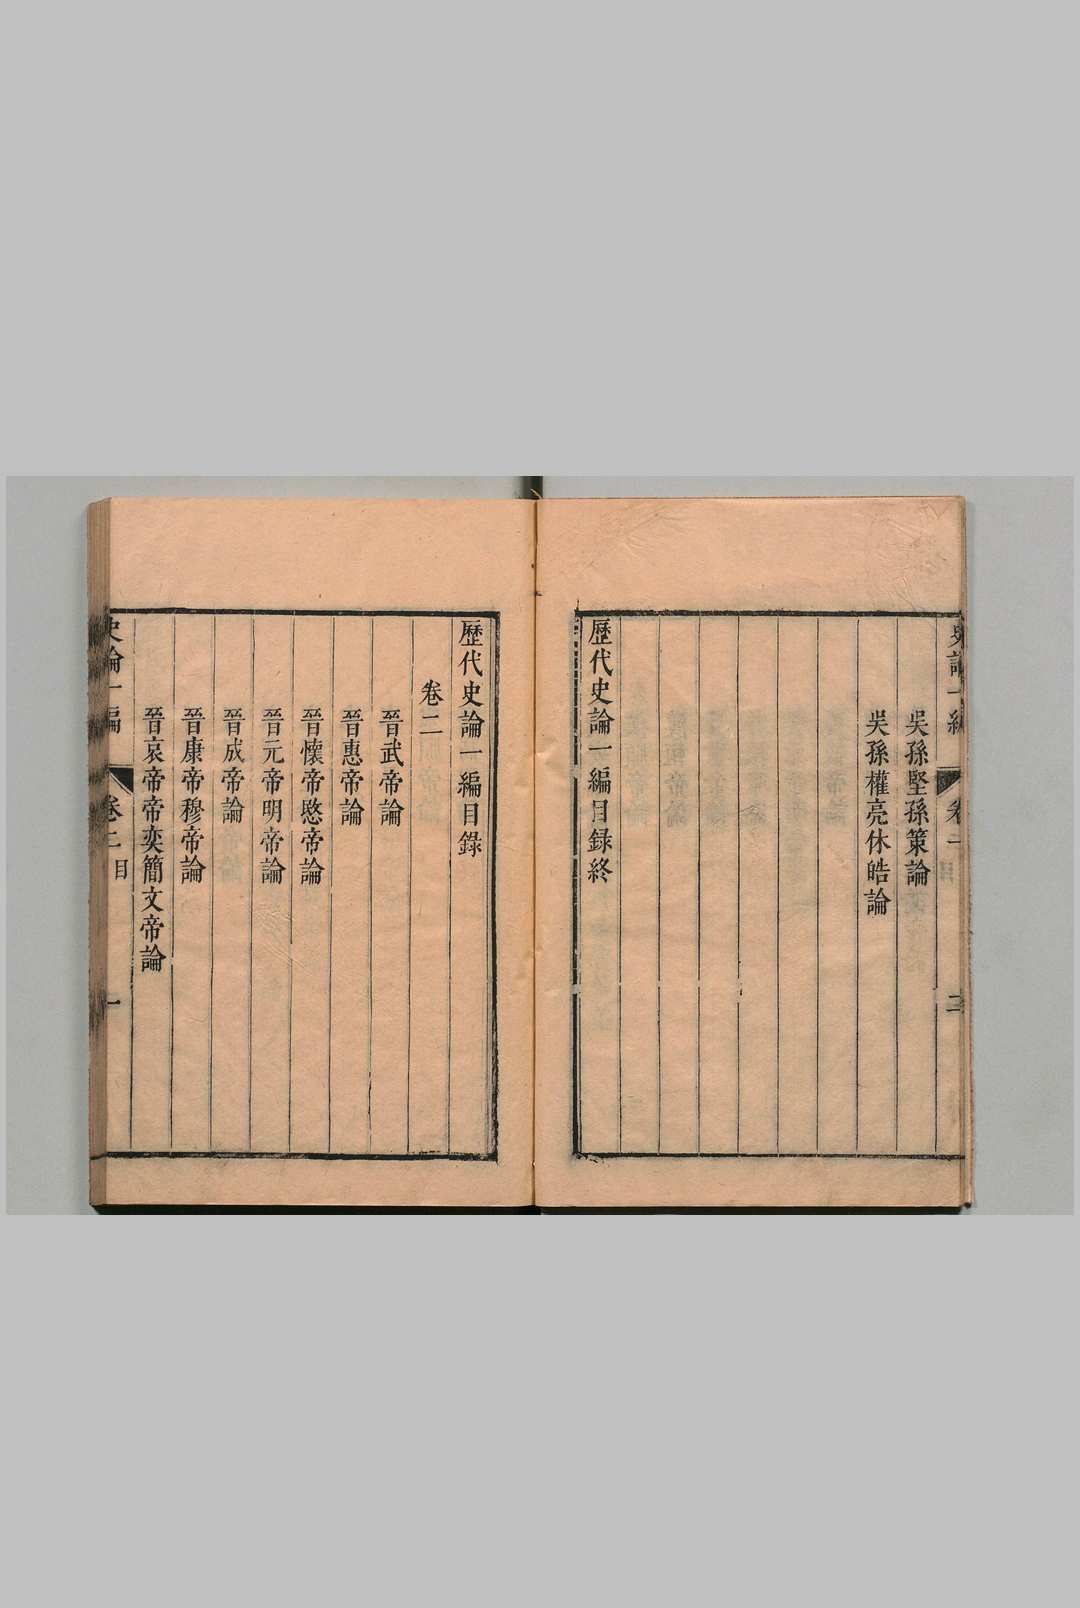 吳孫堅孫策論
吳孫權亮休皓論
歷代史論一編目錄終
歷代史論一編目錄
卷二
晉武帝論
晉惠帝論
晉懷帝愍帝論
晉元帝明帝論
晉成帝論
晉康帝穆帝論
晉哀帝帝奕簡文帝論
史論一編
卷二
目
一